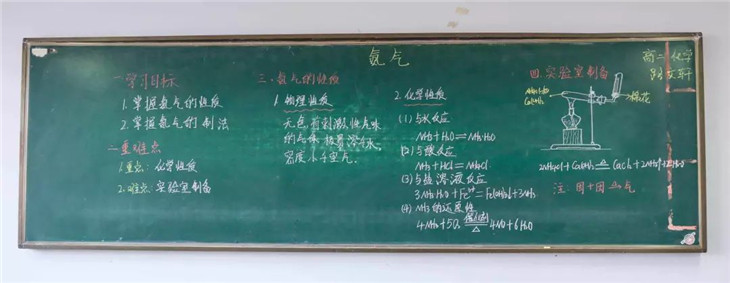 氨气
高二化学
一.学习目标
1.掌握氨气的性质
2.掌握氨气的制法
二.重难点
1.重点：化学性质
2.难点：实验室制备
三.氨气的性质
1.物理性质
无色,有刺激性气味
的气体,极易溶于水,
密度小于空气.
2.化学性质
(1)与水反应
NH₃+H₂O=NH₃·H₂O
(2)与酸反应
NH₃+HCl=NH₄Cl
(3)与盐溶液反应
3NH₃·H₂O+Fe³⁺=Fe(OH)₃↓+3NH₄⁺
(4)NH₃的还原性
4NH₃+5O₂ 催化剂 △ 4NO+6H₂O
四.实验室制备
NH₄Cl
Ca(OH)₂
棉花
2NH₄Cl+Ca(OH)₂ △ CaCl₂+2NH₃↑+2H₂O
注：固+固 △ 气